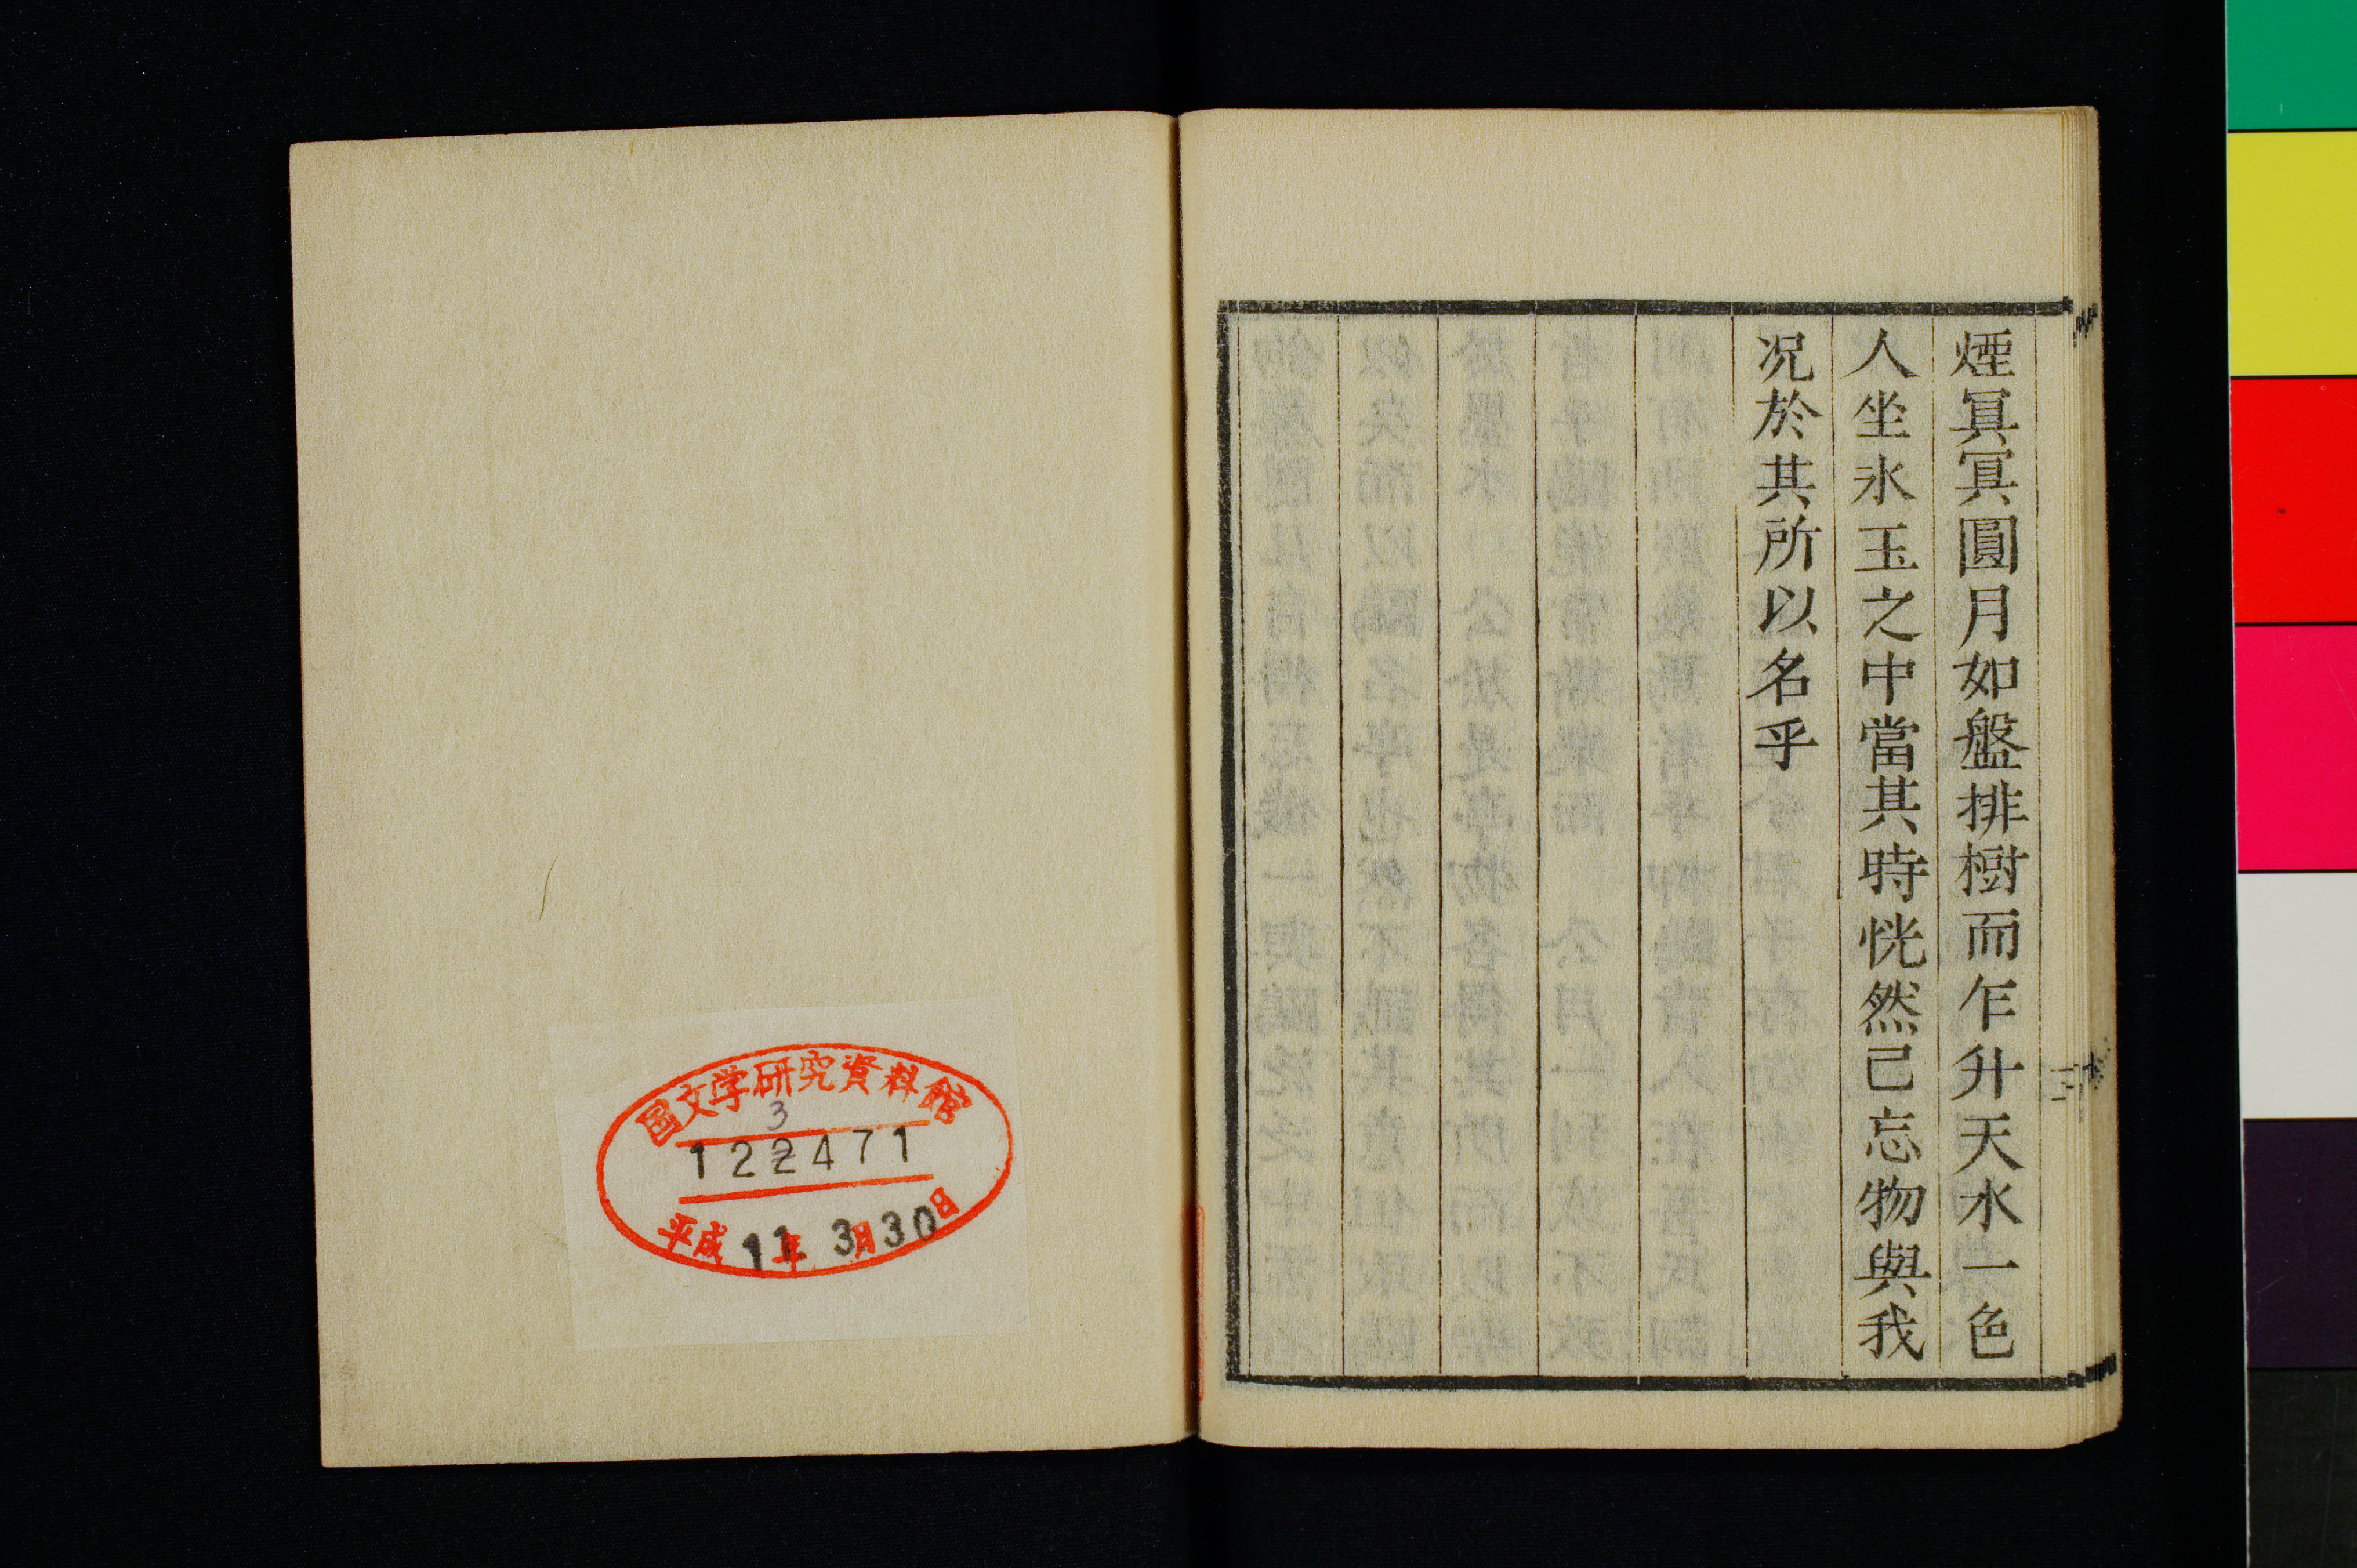 煙冥冥圓月如盤排樹而乍升天水一色
人坐氷玉之中當其時恍然已忘物與我
况於其所以名乎
国文学研究資料館
3
122471
平成11年3月30日